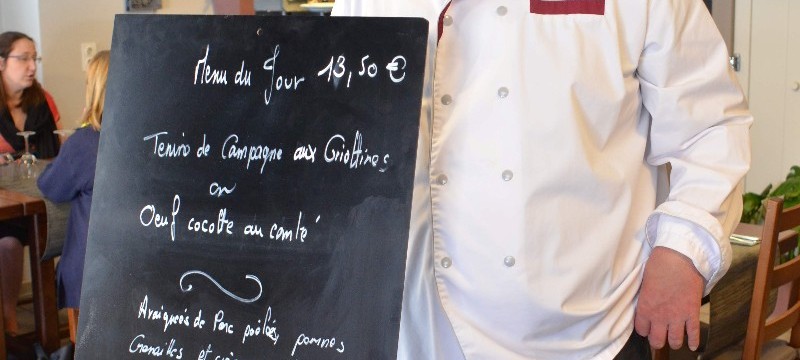 Menu du Jour 13,50 €
Terrine de Campagne aux Griottines
ou
Oeuf cocotte au comté
Araignées de Porc poêlées, pommes
Grenailles et